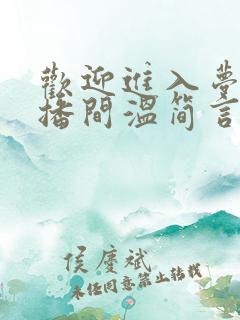 歡迎進入夢
播間溫简言
侯慶斌
未经同意禁止转载